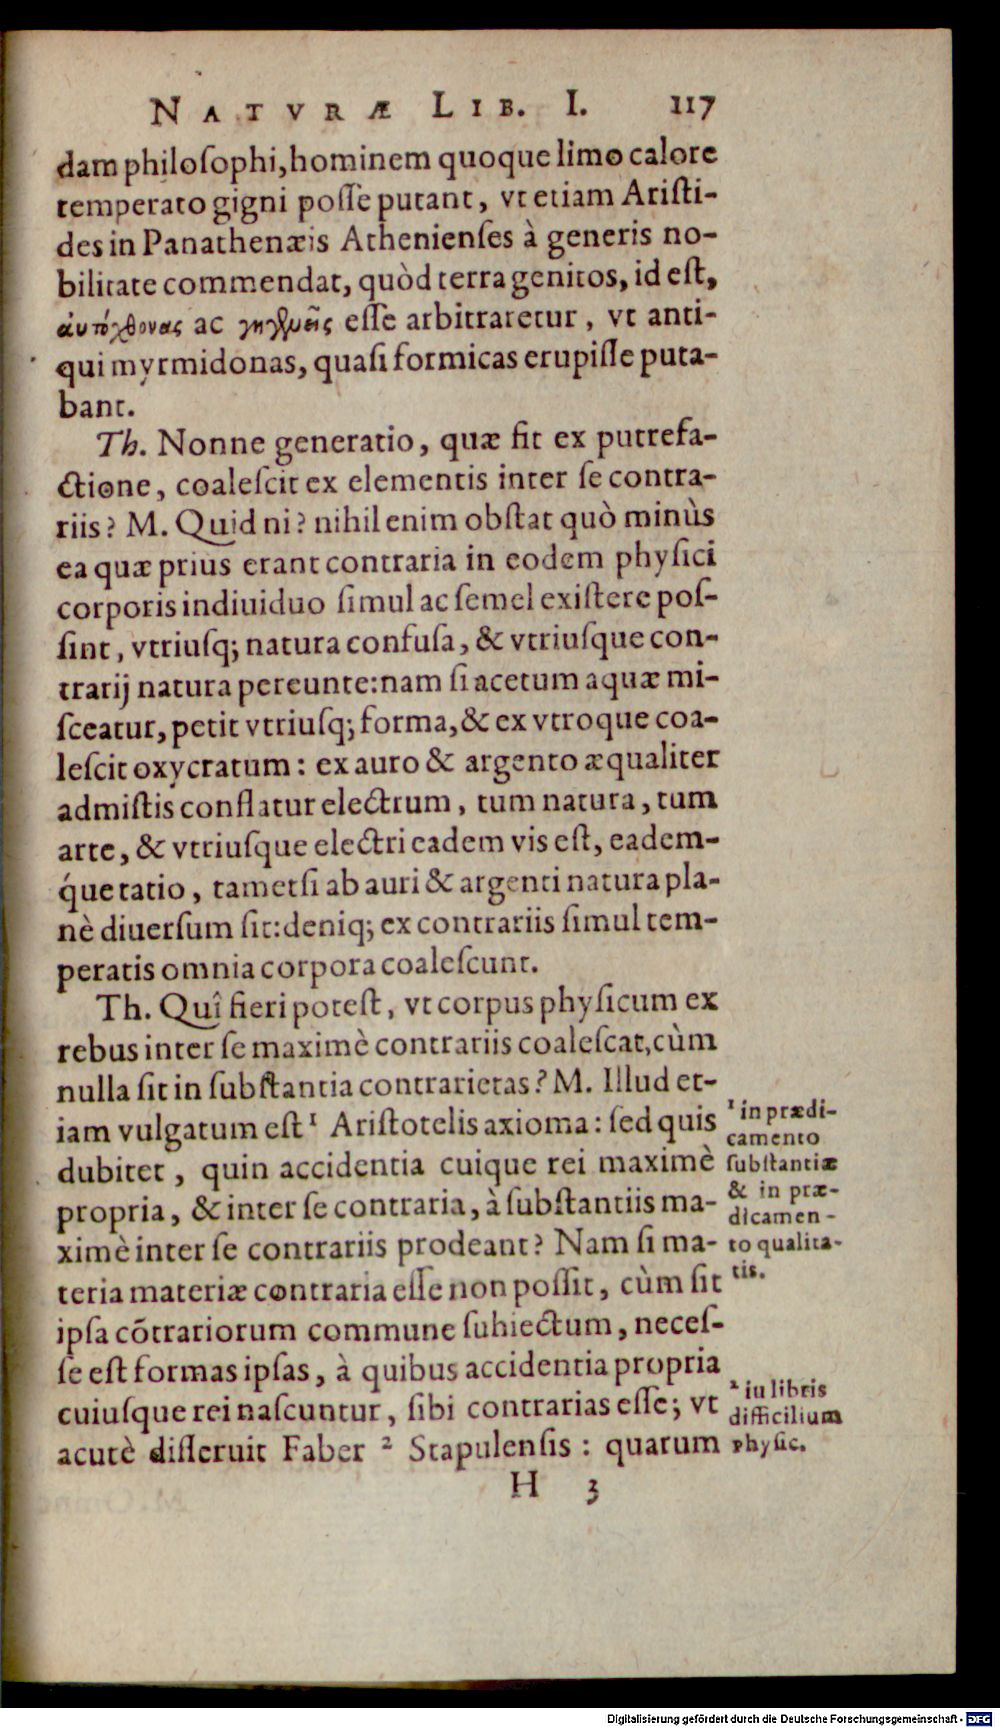 NATVRÆ LIB. I. 117
dam philoſophi, hominem quoque limo calore
temperato gigni poſſe putant, vt etiam Ariſti-
des in Panathenæis Athenienſes à generis no-
bilitate commendat, quòd terra genitos, id eſt,
ac eſſe arbitraretur, vt anti-
qui myrmidonas, quaſi formicas erupiſſe puta-
bant.
Th. Nonne generatio, quæ fit ex putrefa-
ctione, coaleſcit ex elementis inter ſe contra-
riis? M. Quid ni? nihil enim obſtat quò minùs
ea quæ prius erant contraria in eodem phyſici
corporis indiuiduo ſimul ac ſemel exiſtere poſ-
ſint, vtriuſq; natura confuſa, & vtriuſque con-
trarij natura pereunte: nam ſi acetum aquæ mi-
ſceatur, petit vtriuſq; forma, & ex vtroque coa-
leſcit oxycratum: ex auro & argento æqualiter
admiſtis conflatur electrum, tum natura, tum
arte, & vtriuſque electri eadem vis eſt, eadem-
q́ue ratio, tametſi ab auri & argenti natura pla-
nè diuerſum ſit: deniq; ex contrariis ſimul tem-
peratis omnia corpora coaleſcunt.
Th. Quî fieri poteſt, vt corpus phyſicum ex
rebus inter ſe maximè contrariis coaleſcat, cùm
nulla ſit in ſubſtantia contrarietas? M. Illud et-
iam vulgatum eſt ¹ Ariſtotelis axioma: ſed quis
dubitet, quin accidentia cuique rei maximè
propria, & inter ſe contraria, à ſubſtantiis ma-
ximè inter ſe contrariis prodeant? Nam ſi ma-
teria materiæ contraria eſſe non poſſit, cùm ſit
ipſa cõtrariorum commune ſubiectum, neceſ-
ſe eſt formas ipſas, à quibus accidentia propria
cuiuſque rei naſcuntur, ſibi contrarias eſſe; vt
acutè diſſeruit Faber ² Stapulenſis: quarum
¹ in prædi-
camento
ſubſtantiæ
& in præ-
dicamen-
to qualita-
tis.
² iu libris
difficilium
phyſic.
H 3
Digitalisierung gefördert durch die Deutsche Forschungsgemeinschaft - DFG